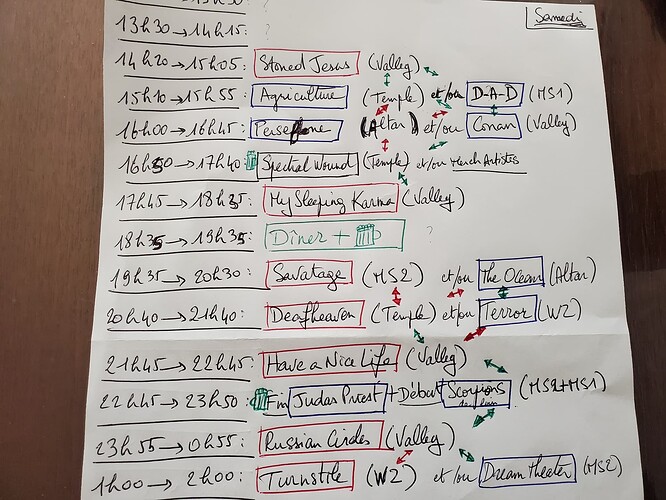 Samedi
13h30 → 14h15 : ?
14h20 → 15h05 : Stoned Jesus (Valley)
15h10 → 15h55 : Agriculture (Temple) et/ou D-A-D (MS1)
16h00 → 16h45 : Persefone (Altar) et/ou Conan (Valley)
16h50 → 17h40 : Spectral Wound (Temple) et/ou Merch Artistes
17h45 → 18h35 : My Sleeping Karma (Valley)
18h35 → 19h35 : Dîner + ?
19h35 → 20h30 : Savatage (MS2) et/ou The Ocean (Altar)
20h40 → 21h40 : Deafheaven (Temple) et/ou Terror (W2)
21h45 → 22h45 : Have a Nice Life (Valley)
22h45 → 23h50 : Fin Judas Priest + Début Scorpions (MS2+MS1)
23h55 → 0h55 : Russian Circles (Valley)
1h00 → 2h00 : Turnstile (W2) et/ou Dream Theater (MS2)